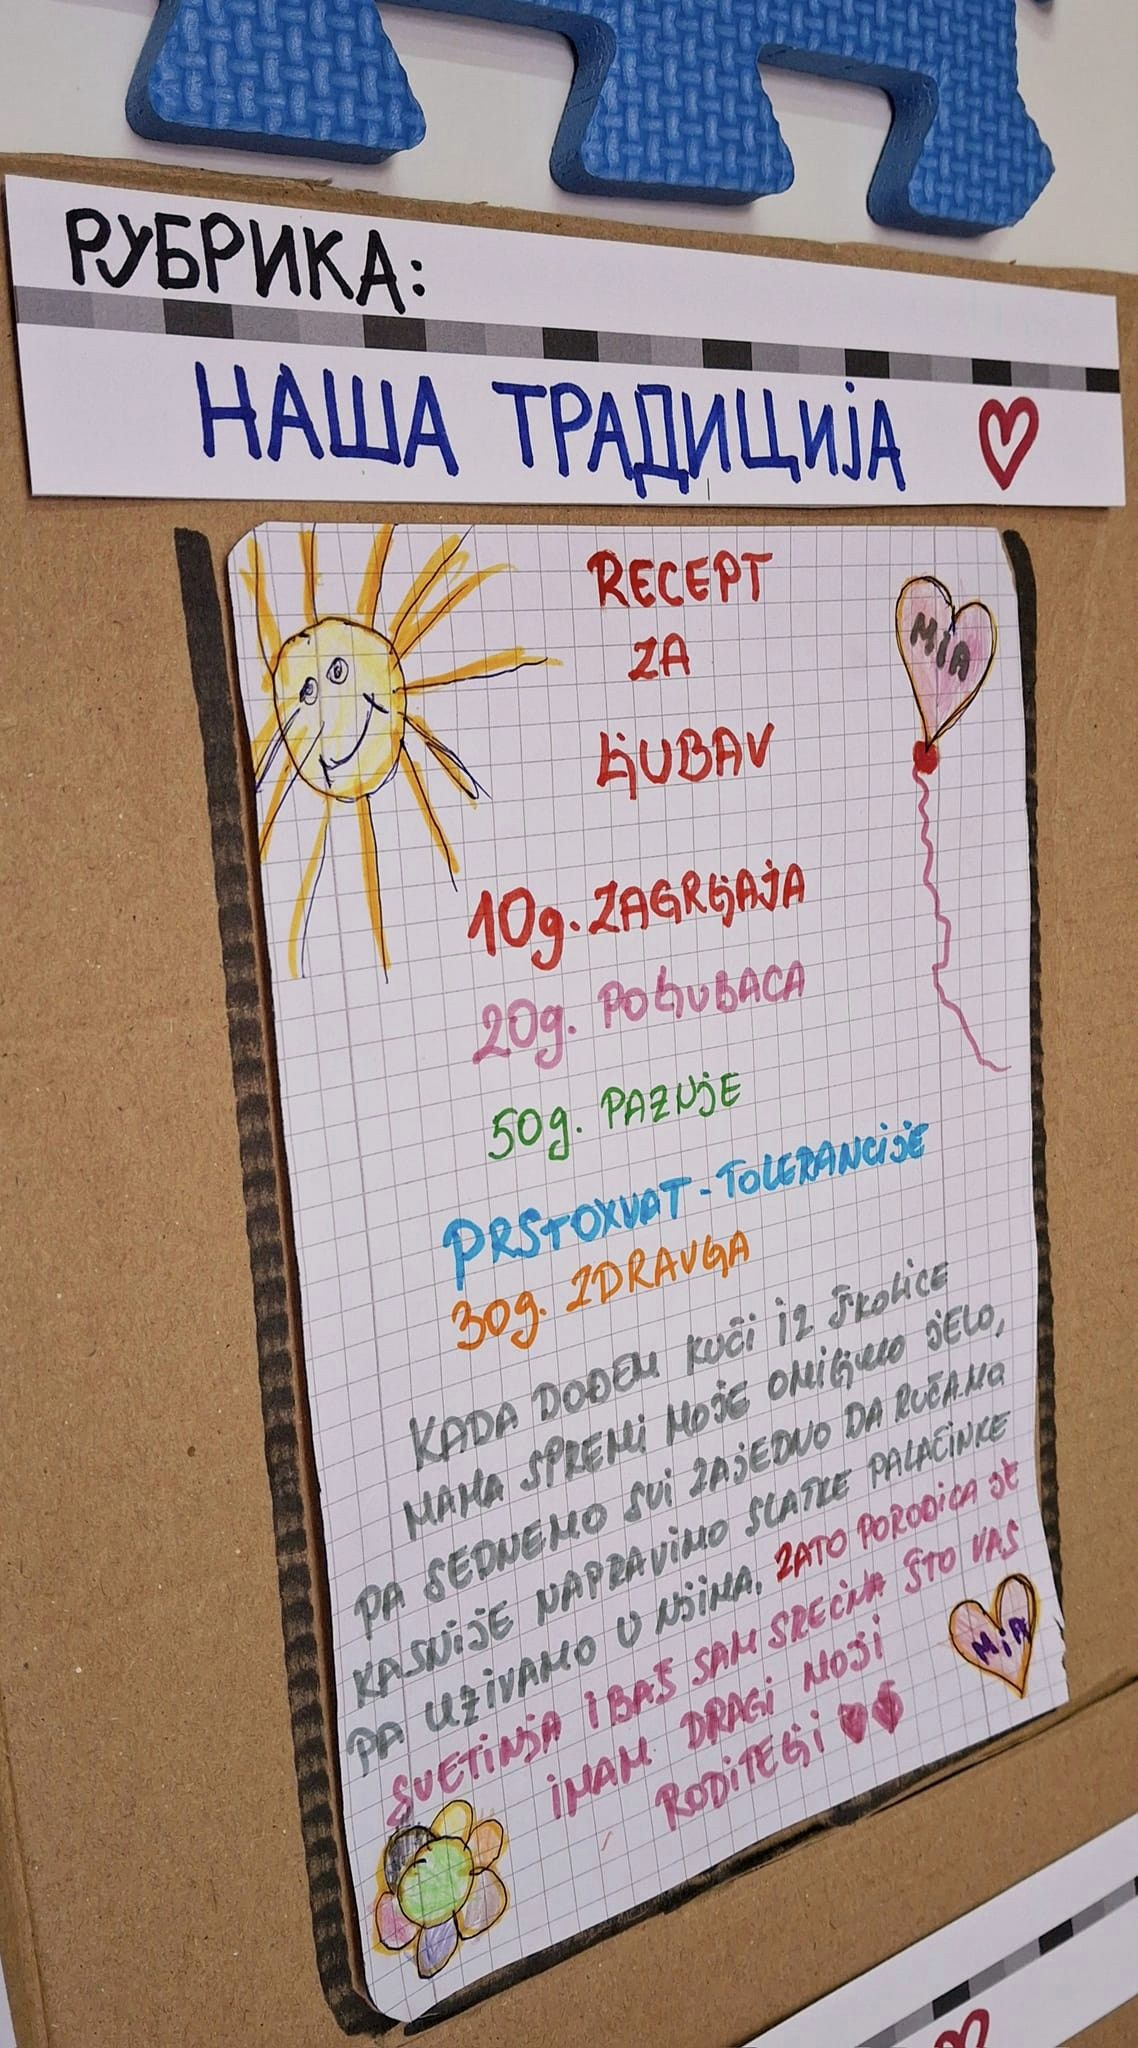 РУБРИКА:
НАША ТРАДИЦИЈА
RECEPT
ZA
LJUBAV
MIA
10g. ZAGRLJAJA
20g. POLJUBACA
50g. PAZNJE
PRSTOXVAT-TOLERANCIJE
30g. ZDRAVLJA
KADA DOĐEM KUĆI IZ ŠKOLICE
MAMA SPREMI MOJE OMILJENO JELO,
PA SEDNEMO SVI ZAJEDNO DA RUČAMO
KASNIJE NAPRAVIMO SLATKE PALAČINKE
PA UZIVAMO U NJIMA. ZATO PORODICA JE
SVETINJA I BAŠ SAM SREĆNA ŠTO VAS
IMAM DRAGI MOJI
RODITELJI
MIA